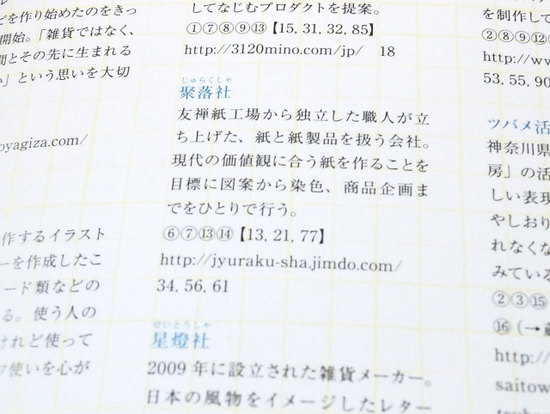 どを作り始めたのをきっ
開始。「雑貨ではなく、
間とその先に生まれる
い」という思いを大切
oyagiza.com/
作するイラスト
ーを作成したこ
ード類などの
る。使う人の
けれど使って
使いを心が
してなじむプロダクトを提案。
①⑦⑧⑨⑬【15, 31, 32, 85】
http://3120mino.com/jp/ 18
じゅらくしゃ
聚落社
友禅紙工場から独立した職人が立
ち上げた、紙と紙製品を扱う会社。
現代の価値観に合う紙を作ることを
目標に図案から染色、商品企画ま
でをひとりで行う。
⑥⑦⑬⑭【13, 21, 77】
http://jyuraku-sha.jimdo.com/
34, 56, 61
せいとうしゃ
星燈社
2009年に設立された雑貨メーカー。
日本の風物をイメージしたレター
を制作して
②⑧⑨⑫
http://ww
53, 55, 90
ツバメ活
神奈川県
房」の活
しい表現
やしおり
れなくな
みている
②③⑮
⑯(→
http://
saitow